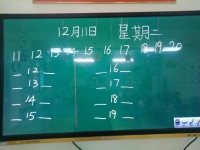 12月11日 星期二
11 12 13 14 15 16 17 18 19 20
__12__ __16__
__13__ __17__
__14__ __18__
__15__ __19__